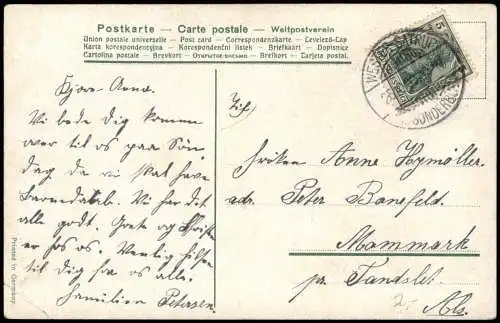 Postkarte — Carte postale — Weltpostverein
Union postale universelle — Post card — Correspondenzkarte — Levelező-Lap
Karta korespondencyjna — Korespondenční lístek — Briefkaart — Dopisnice
Cartolina postale — Brevkort — Открытое письмо — Brefkort — Tarjeta postal.
Kjære Anna.
Vi bede dig komme
over til os paa Søn-
dag da vi skal have
Vi har det
alle godt. Grete og
er hos os. Venlig hilsen
til Dig fra os alle.
Familien Petersen.
Frøken Anne Hoymøller.
adr. Peter Bonefeld
Mommark
pr. Tandslet.
Als.
5
SONDERB
Printed in Germany.
2.-